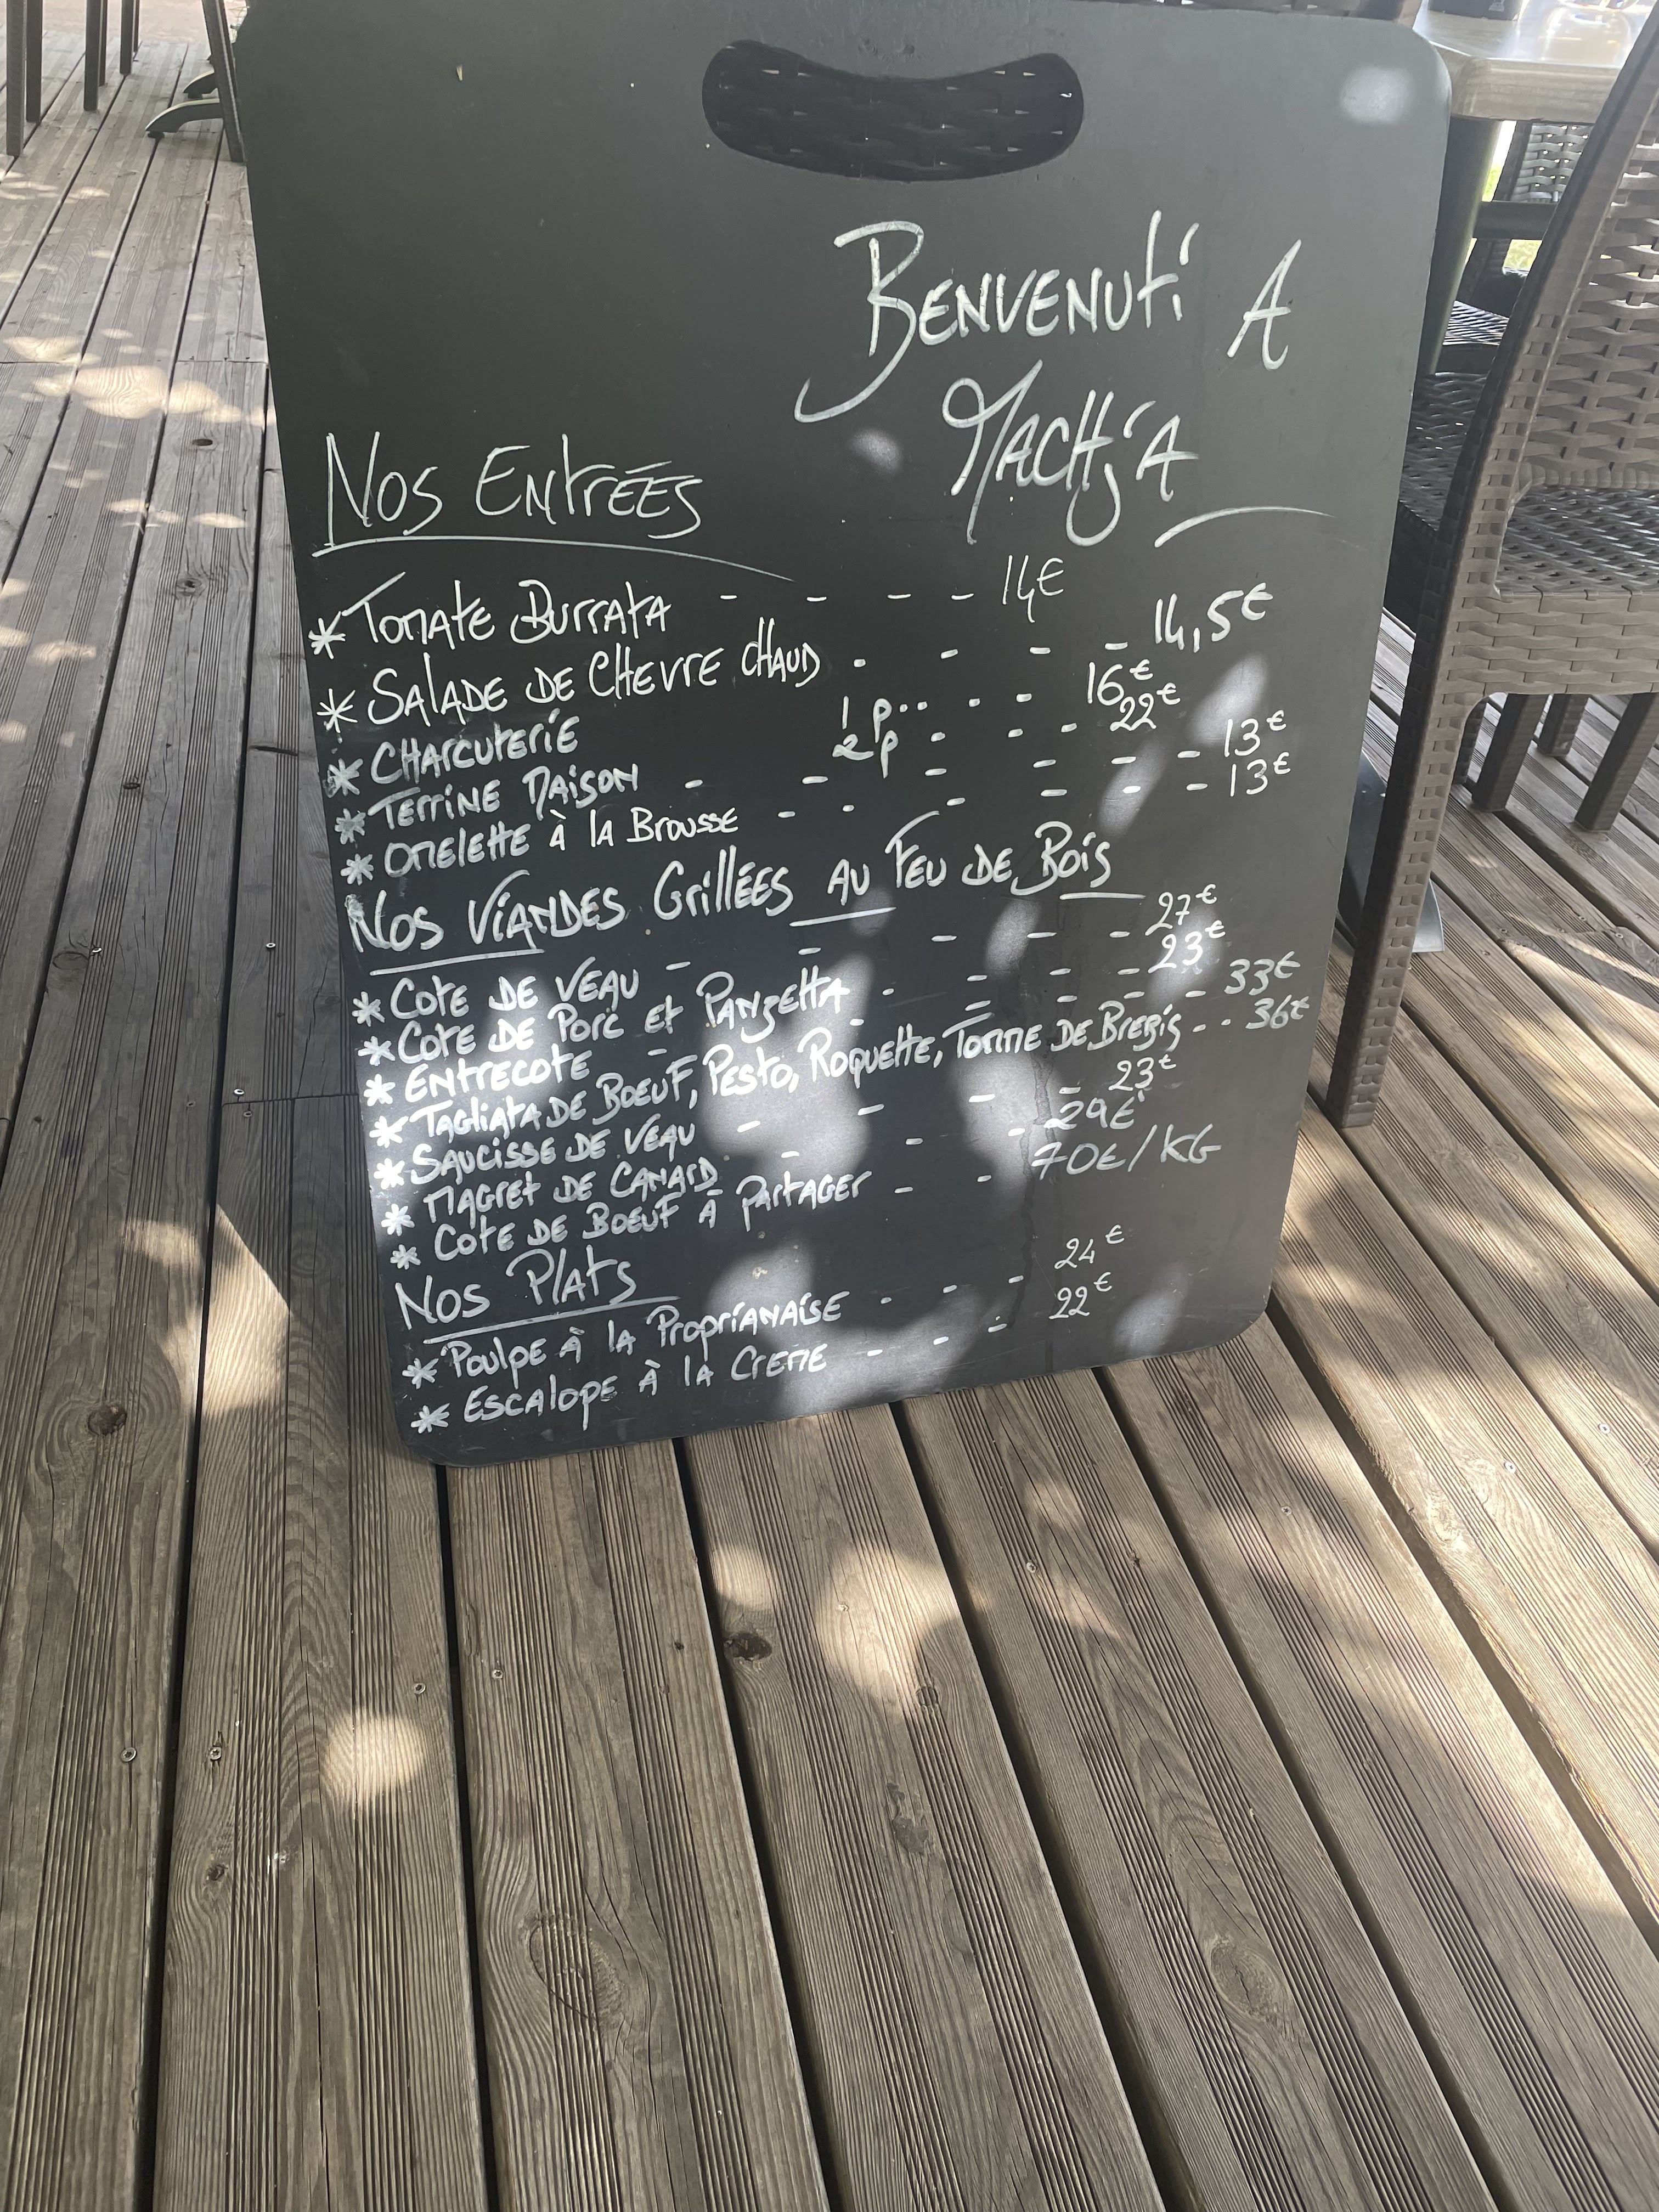 BENVENUTI A
MACHJA
NOS ENTRÉES
* TOMATE BURRATA - - - - 14€
* SALADE DE CHEVRE CHAUD - - - - 14,5€
* CHARCUTERIE 1 p.. - - 16€
2 p - - - 22€
* TERRINE MAISON - - - - - - 13€
* OMELETTE À LA BROUSSE - - - - - - 13€
NOS VIANDES GRILLÉES AU FEU DE BOIS
* COTE DE VEAU - - - - - 27€
* COTE DE PORC ET PANZETTA - - - - 23€
* ENTRECOTE - - - - - - 33€
* TAGLIATA DE BOEUF, PESTO, ROQUETTE, TOMME DE BREBIS - - 36€
* SAUCISSE DE VEAU - - - - 23€
* MAGRET DE CANARD - - - 29€
* COTE DE BOEUF À PARTAGER - - 70€/KG
NOS PLATS
* POULPE À LA PROPRIANAISE - - - 24€
* ESCALOPE À LA CREME - - - 22€